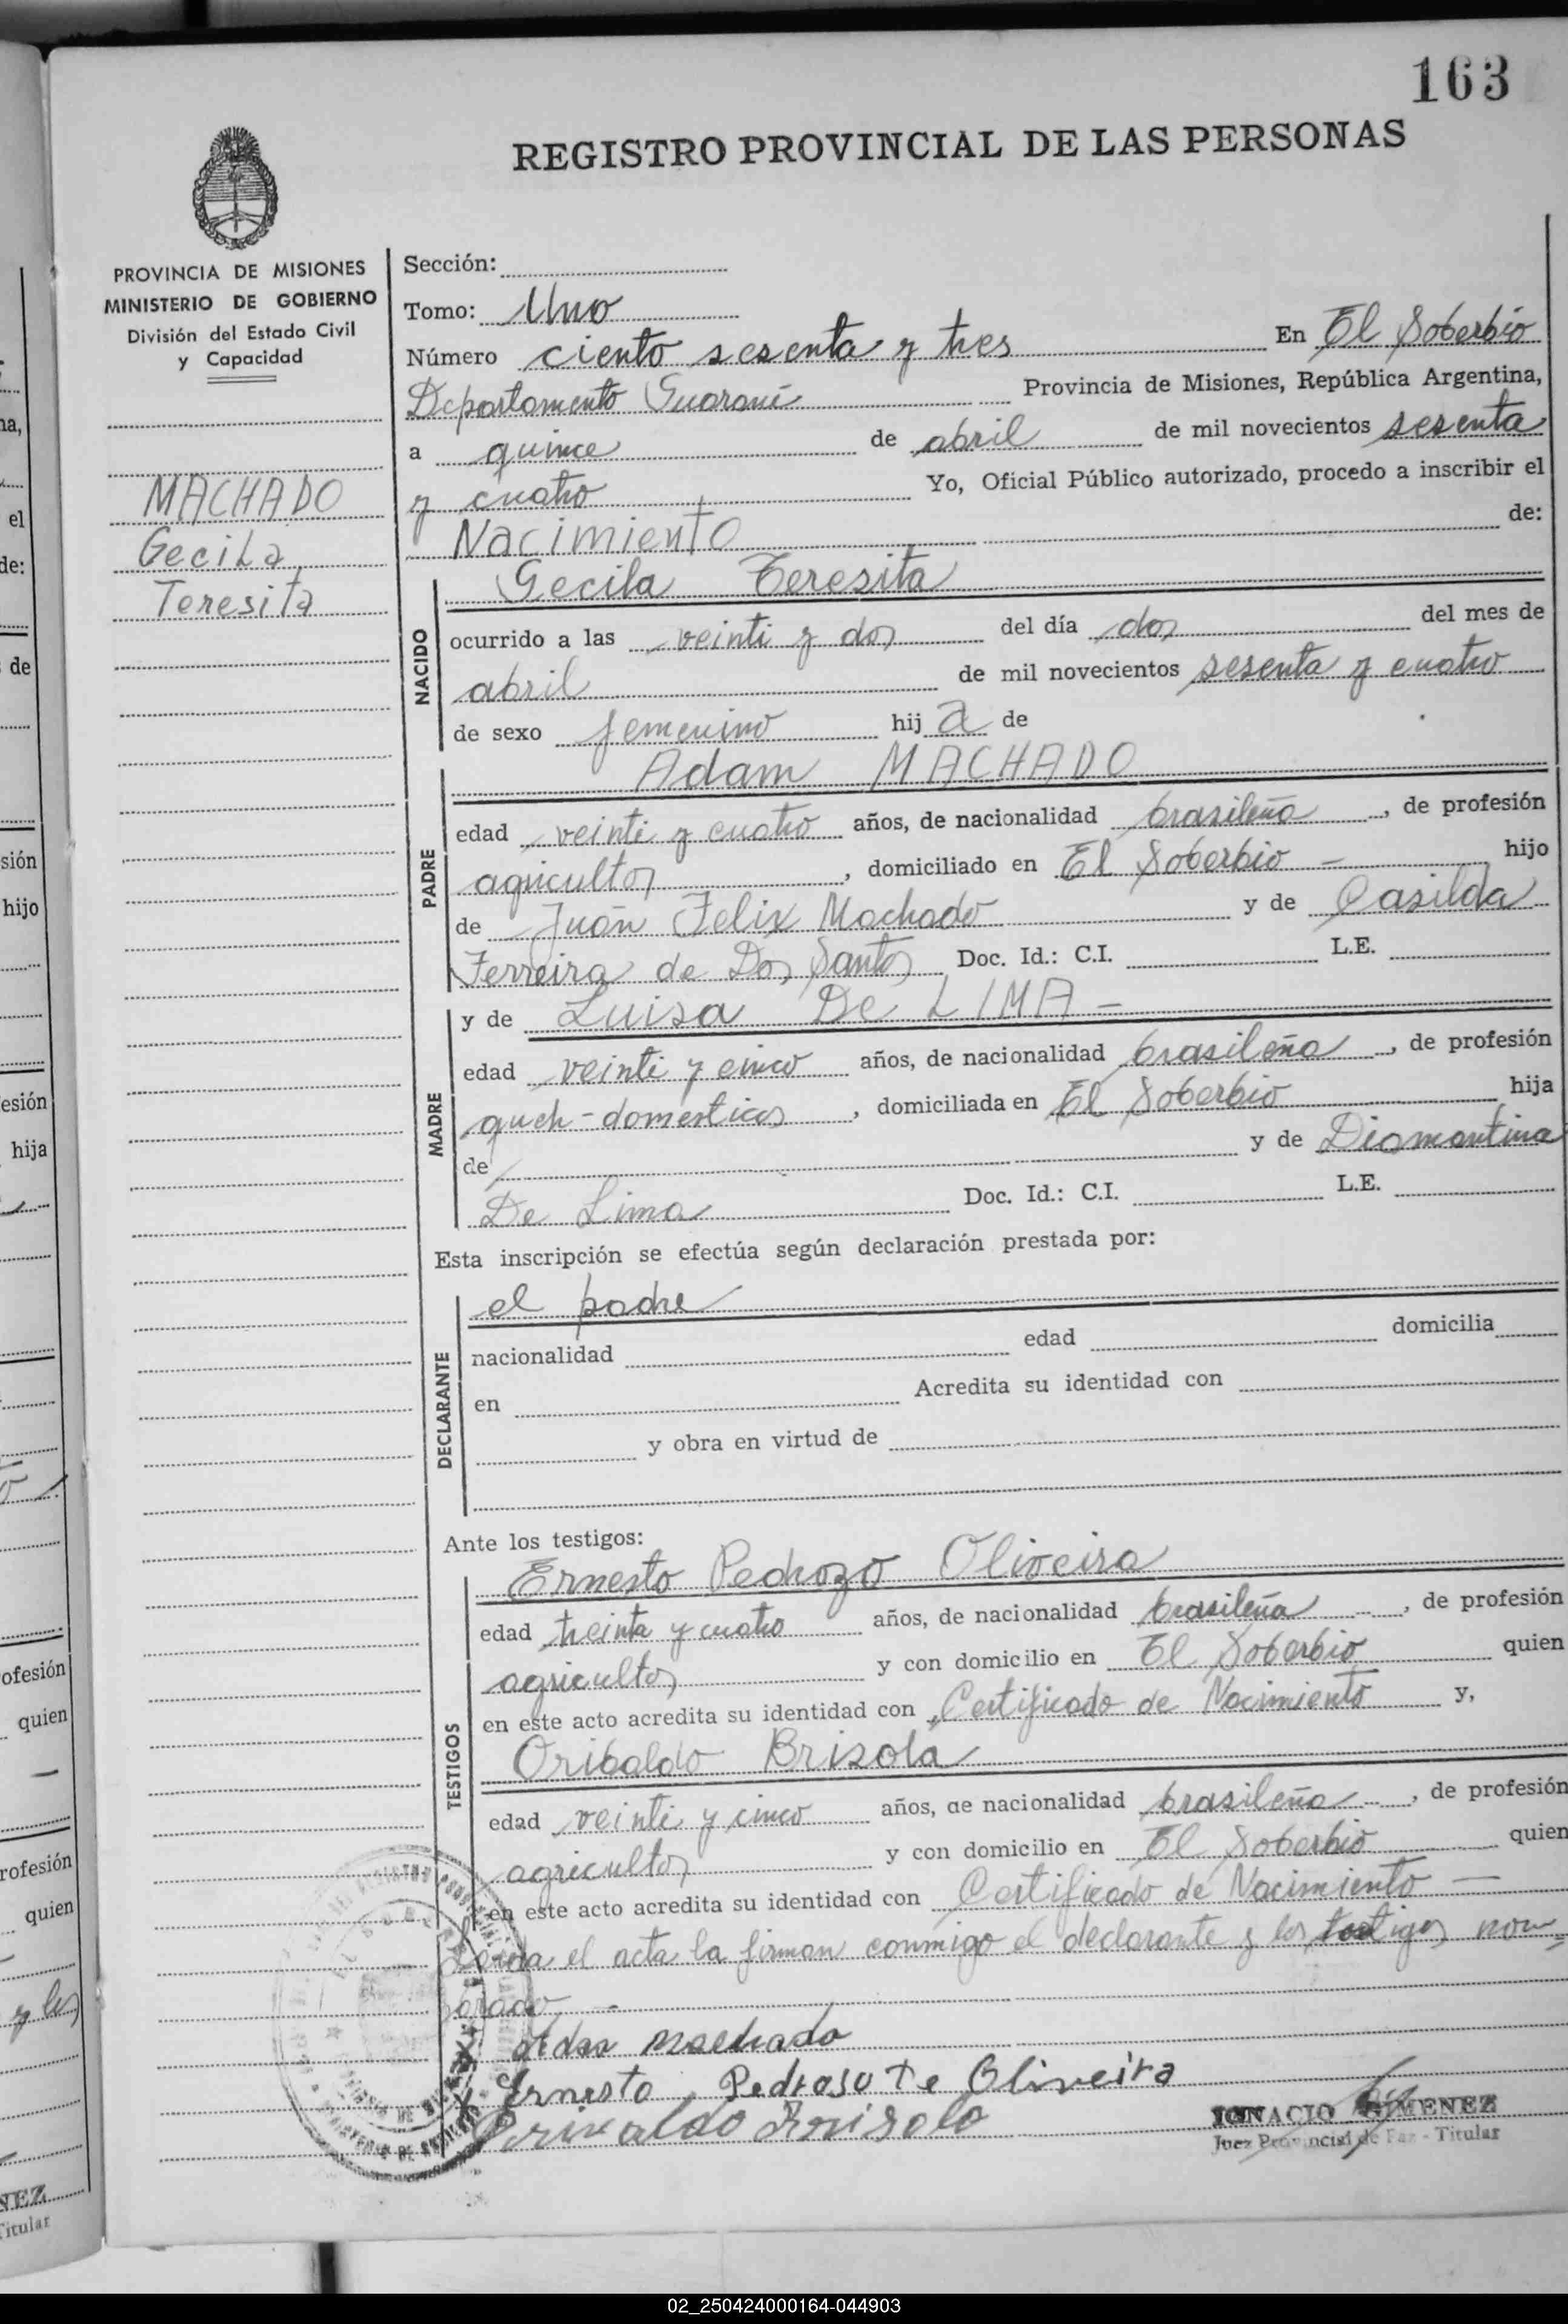 163
REGISTRO PROVINCIAL DE LAS PERSONAS
PROVINCIA DE MISIONES
MINISTERIO DE GOBIERNO
División del Estado Civil
y Capacidad
MACHADO
Gecila
Teresita
Sección:
Tomo: Uno
Número ciento sesenta y tres En El Soberbio
Departamento Guaraní Provincia de Misiones, República Argentina,
a quince de abril de mil novecientos sesenta
y cuatro Yo, Oficial Público autorizado, procedo a inscribir el
Nacimiento de:
Gecila Teresita
NACIDO
ocurrido a las veinti y dos del día dos del mes de
abril de mil novecientos sesenta y cuatro
de sexo femenino hij a de
Adam MACHADO
PADRE
edad veinti y cuatro años, de nacionalidad brasileña, de profesión
agricultor, domiciliado en El Soberbio - hijo
de Juan Felix Machado y de Casilda
Ferreira de Dos Santos Doc. Id.: C.I. L.E.
y de Luisa De LIMA -
MADRE
edad veinti y cinco años, de nacionalidad brasileña, de profesión
queh-domesticos, domiciliada en El Soberbio hija
de y de Diamantina
De Lima Doc. Id.: C.I. L.E.
Esta inscripción se efectúa según declaración prestada por:
el padre
DECLARANTE
nacionalidad edad domicilia
en Acredita su identidad con
y obra en virtud de
Ante los testigos:
Ernesto Pedrozo Oliveira
TESTIGOS
edad treinta y cuatro años, de nacionalidad brasileña, de profesión
agricultor y con domicilio en El Soberbio quien
en este acto acredita su identidad con Certificado de Nacimiento y,
Oribaldo Brisola
edad veinti y cinco años, de nacionalidad brasileña, de profesión
agricultor y con domicilio en El Soberbio quien
en este acto acredita su identidad con Certificado de Nacimiento —
Leída el acta la firman conmigo el declarante y los testigos nom=
brados -
Adan machado
Ernesto Pedroso de Oliveira
Orivaldo Brisola
IGNACIO GIMENEZ
Juez Provincial de Paz - Titular
02_250424000164-044903